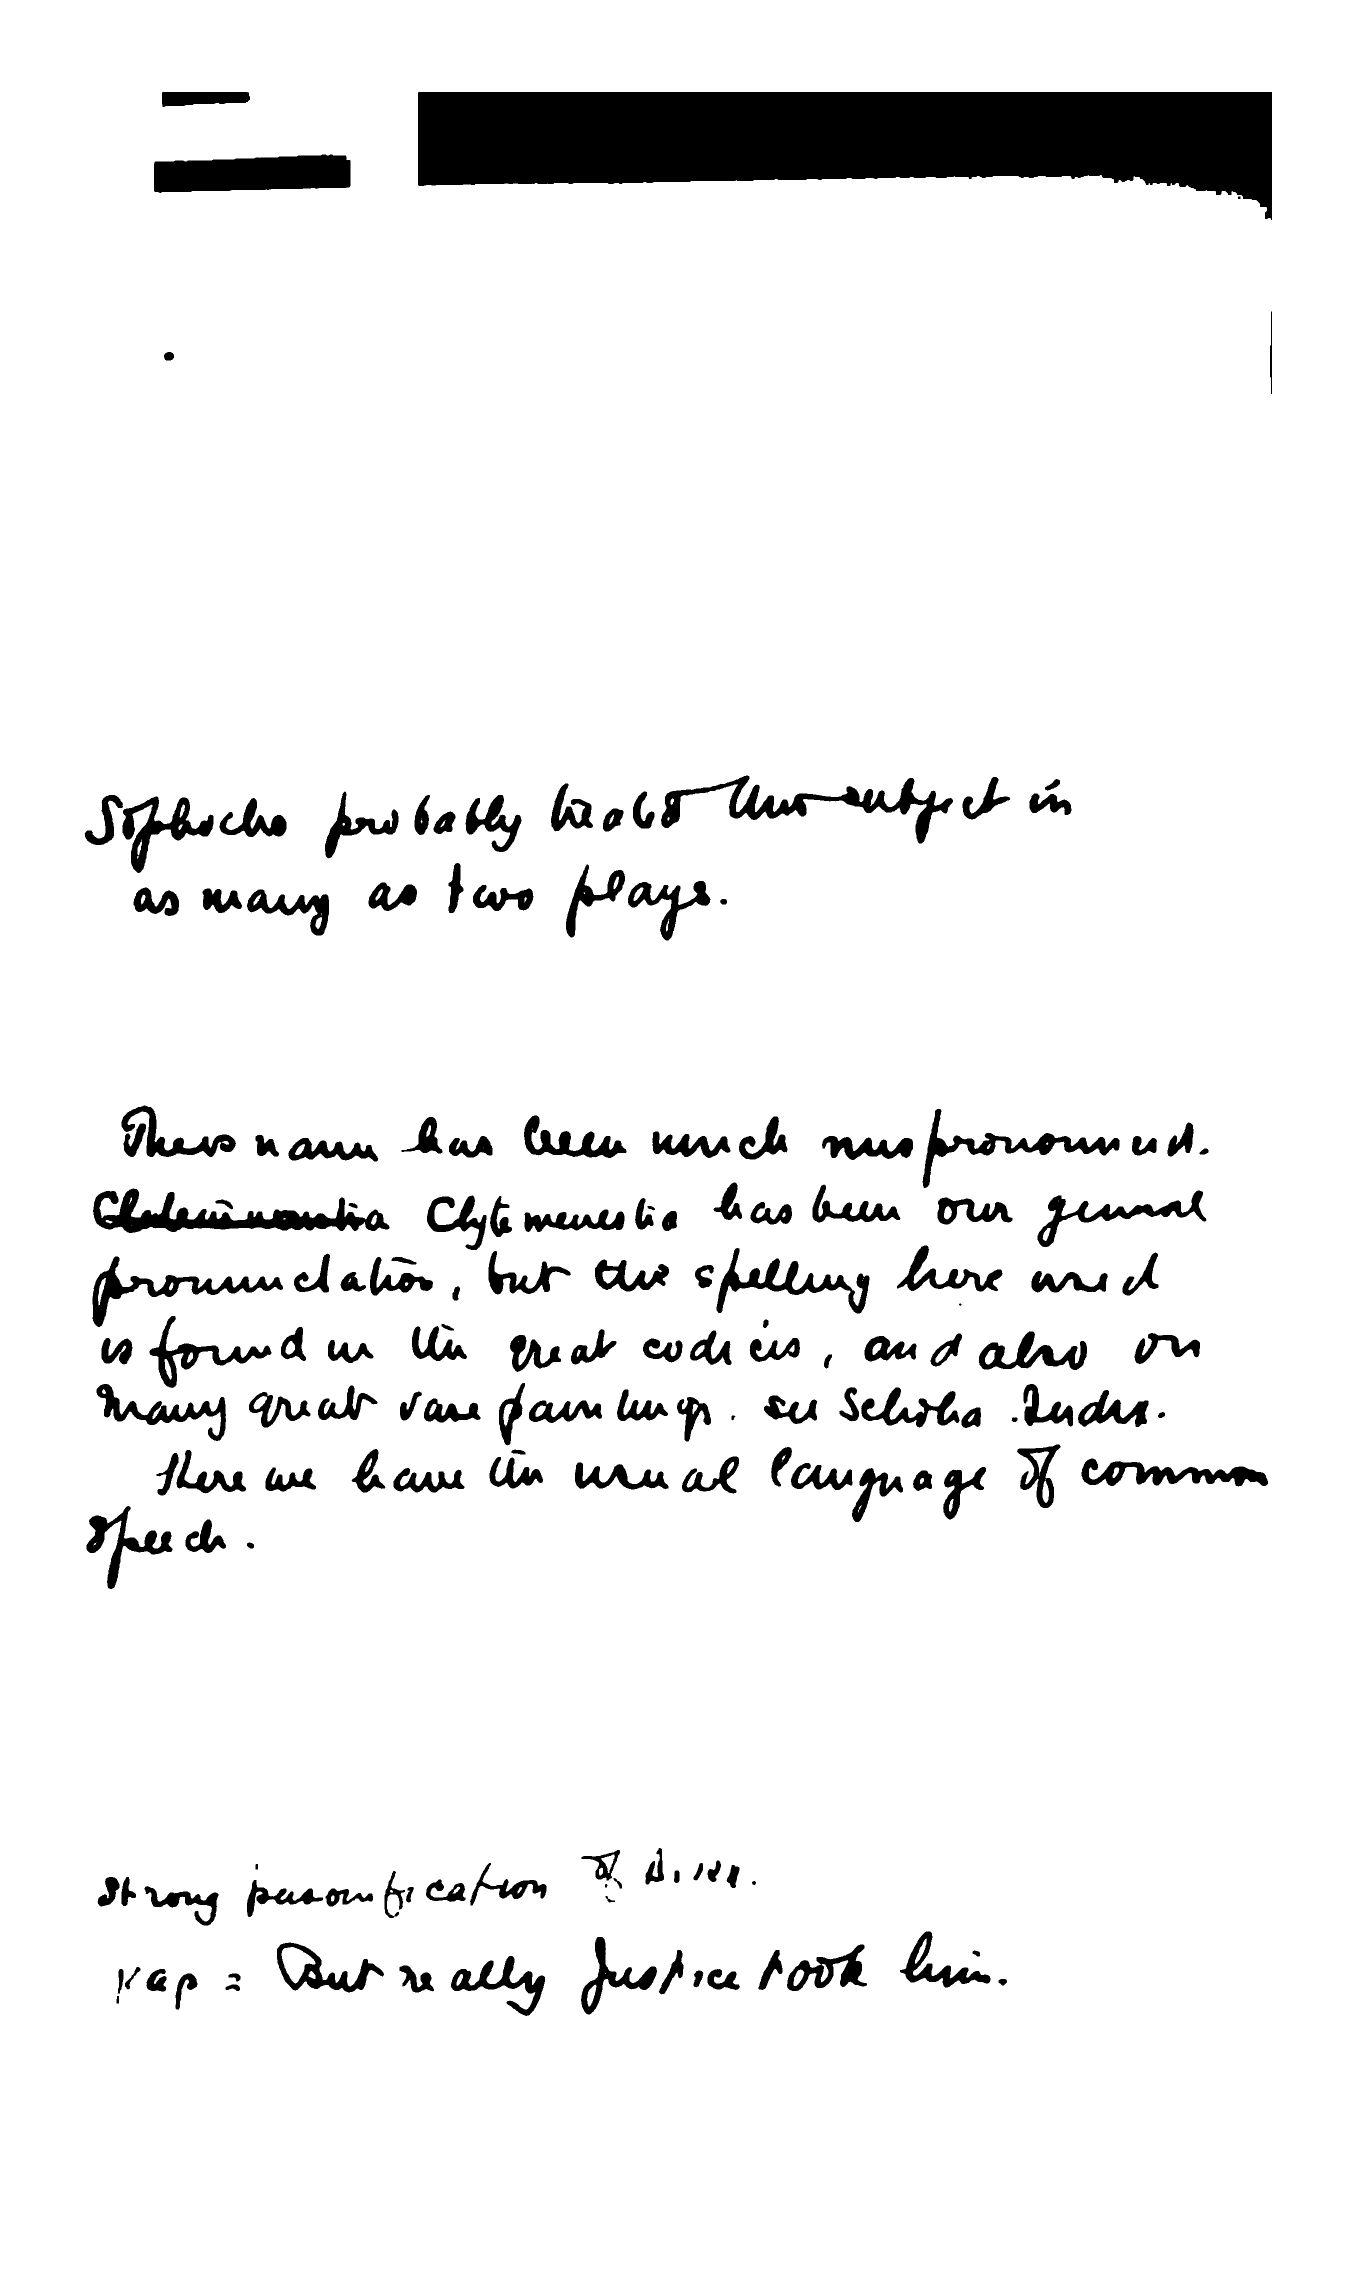 Sophocles probably treats this subject in
as many as two plays.
This name has been much mispronounced.
Clytemenestra has been our general
pronunciation, but the spelling here used
is found in the great codices, and also on
many great vase paintings. see Scholia Index.
Here we have the usual language of common
speech.
Strong personification of
γαρ = But really Justice took him.